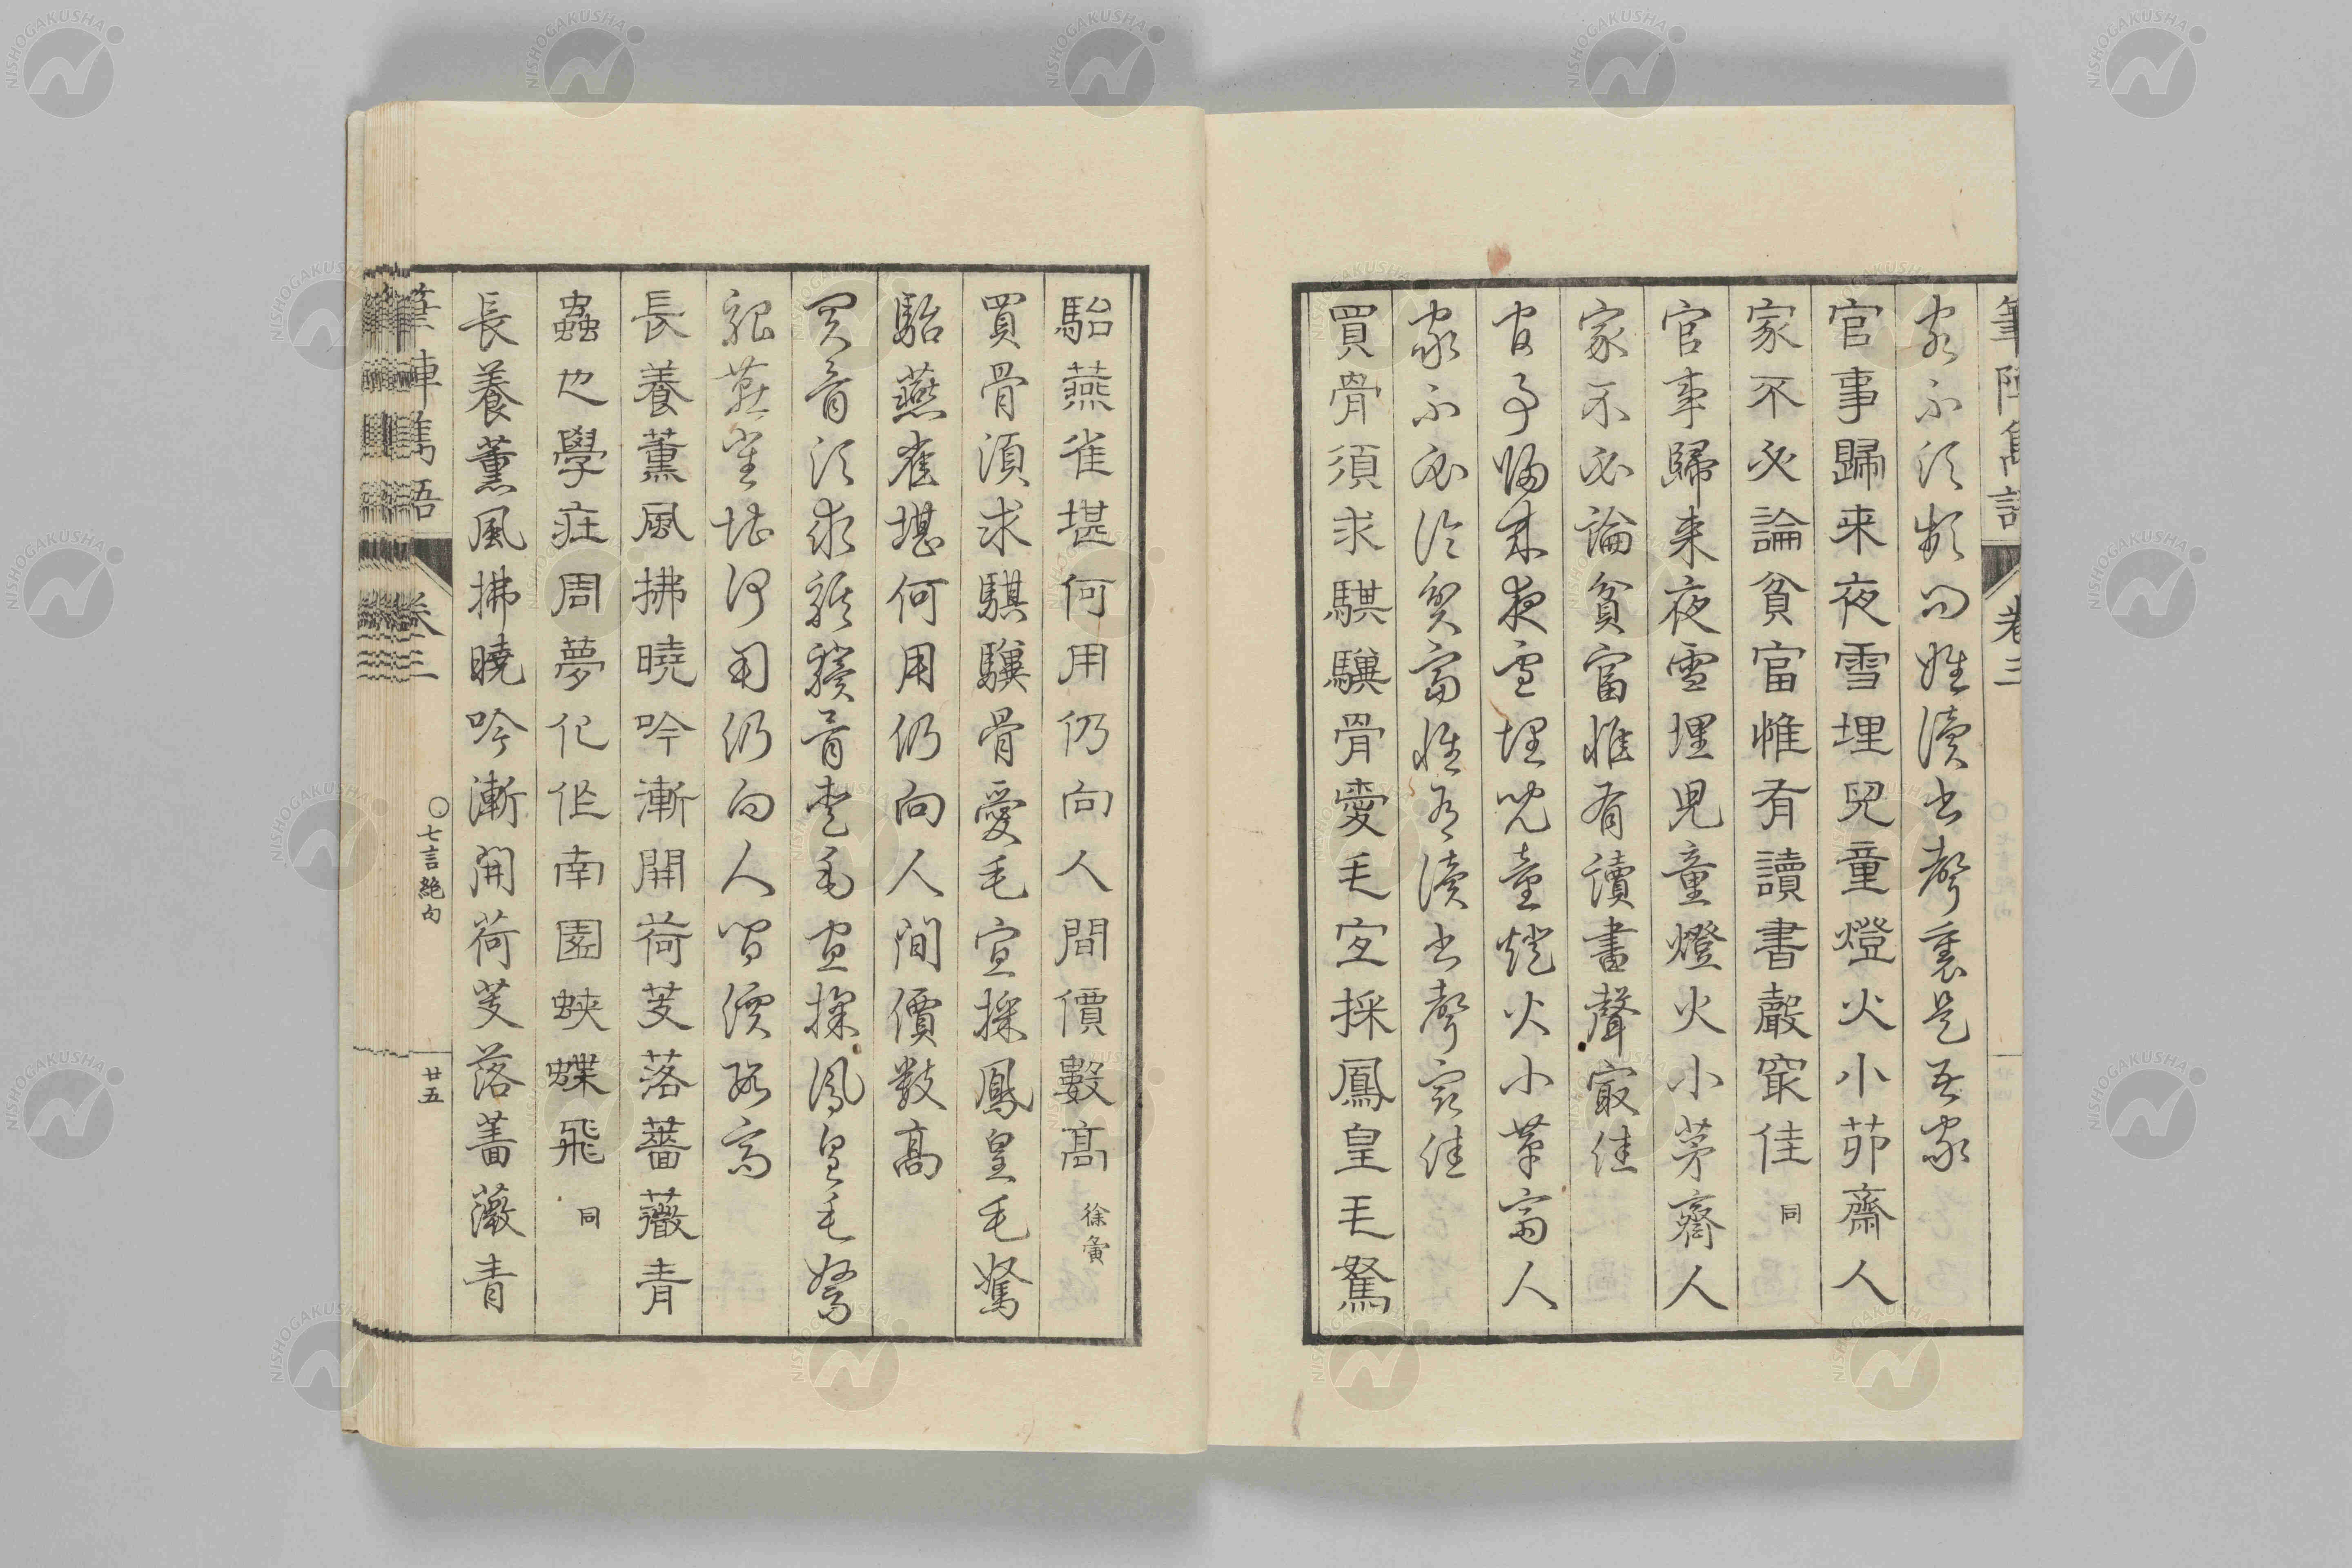 筆陣雋語 卷三
家不須頻問姓讀書聲裏是吾家
官事歸来夜雪埋兒童燈火小茆齋人
家不必論貧富惟有讀書聲最佳 同
官事歸来夜雪埋兒童燈火小茅齋人
家不必論貧富惟有讀書聲最佳
官事歸来夜雪埋兒童燈火小茅齋人
家不必論貧富惟有讀書聲最佳
買骨須求騏驥骨愛毛宜採鳳皇毛駑
駘燕雀堪何用仍向人間價數高 徐夤
買骨須求騏驥骨愛毛宜採鳳皇毛駑
駘燕雀堪何用仍向人間價數高
買骨須求騏驥骨愛毛宜採鳳皇毛駑
駘燕雀堪何用仍向人間價數高
長養薰風拂曉吟漸開荷芰落薔薇青
蟲也學莊周夢化作南園蛺蝶飛 同
長養薰風拂曉吟漸開荷芰落薔薇青
筆陣雋語 卷三 ○七言絶句 廿五
NISHOGAKUSHA